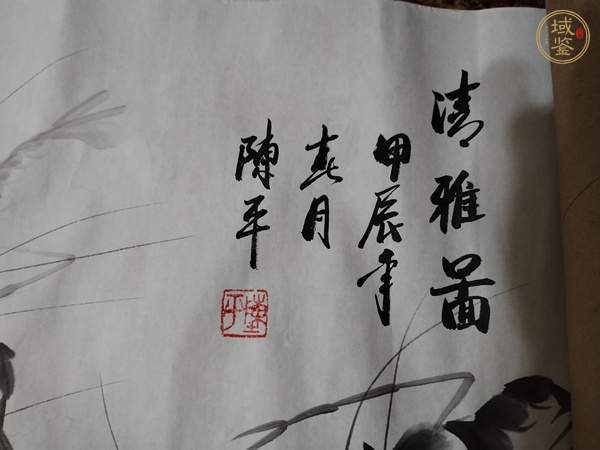 清雅图
甲辰年
春月
陳平
陳平
域鉴